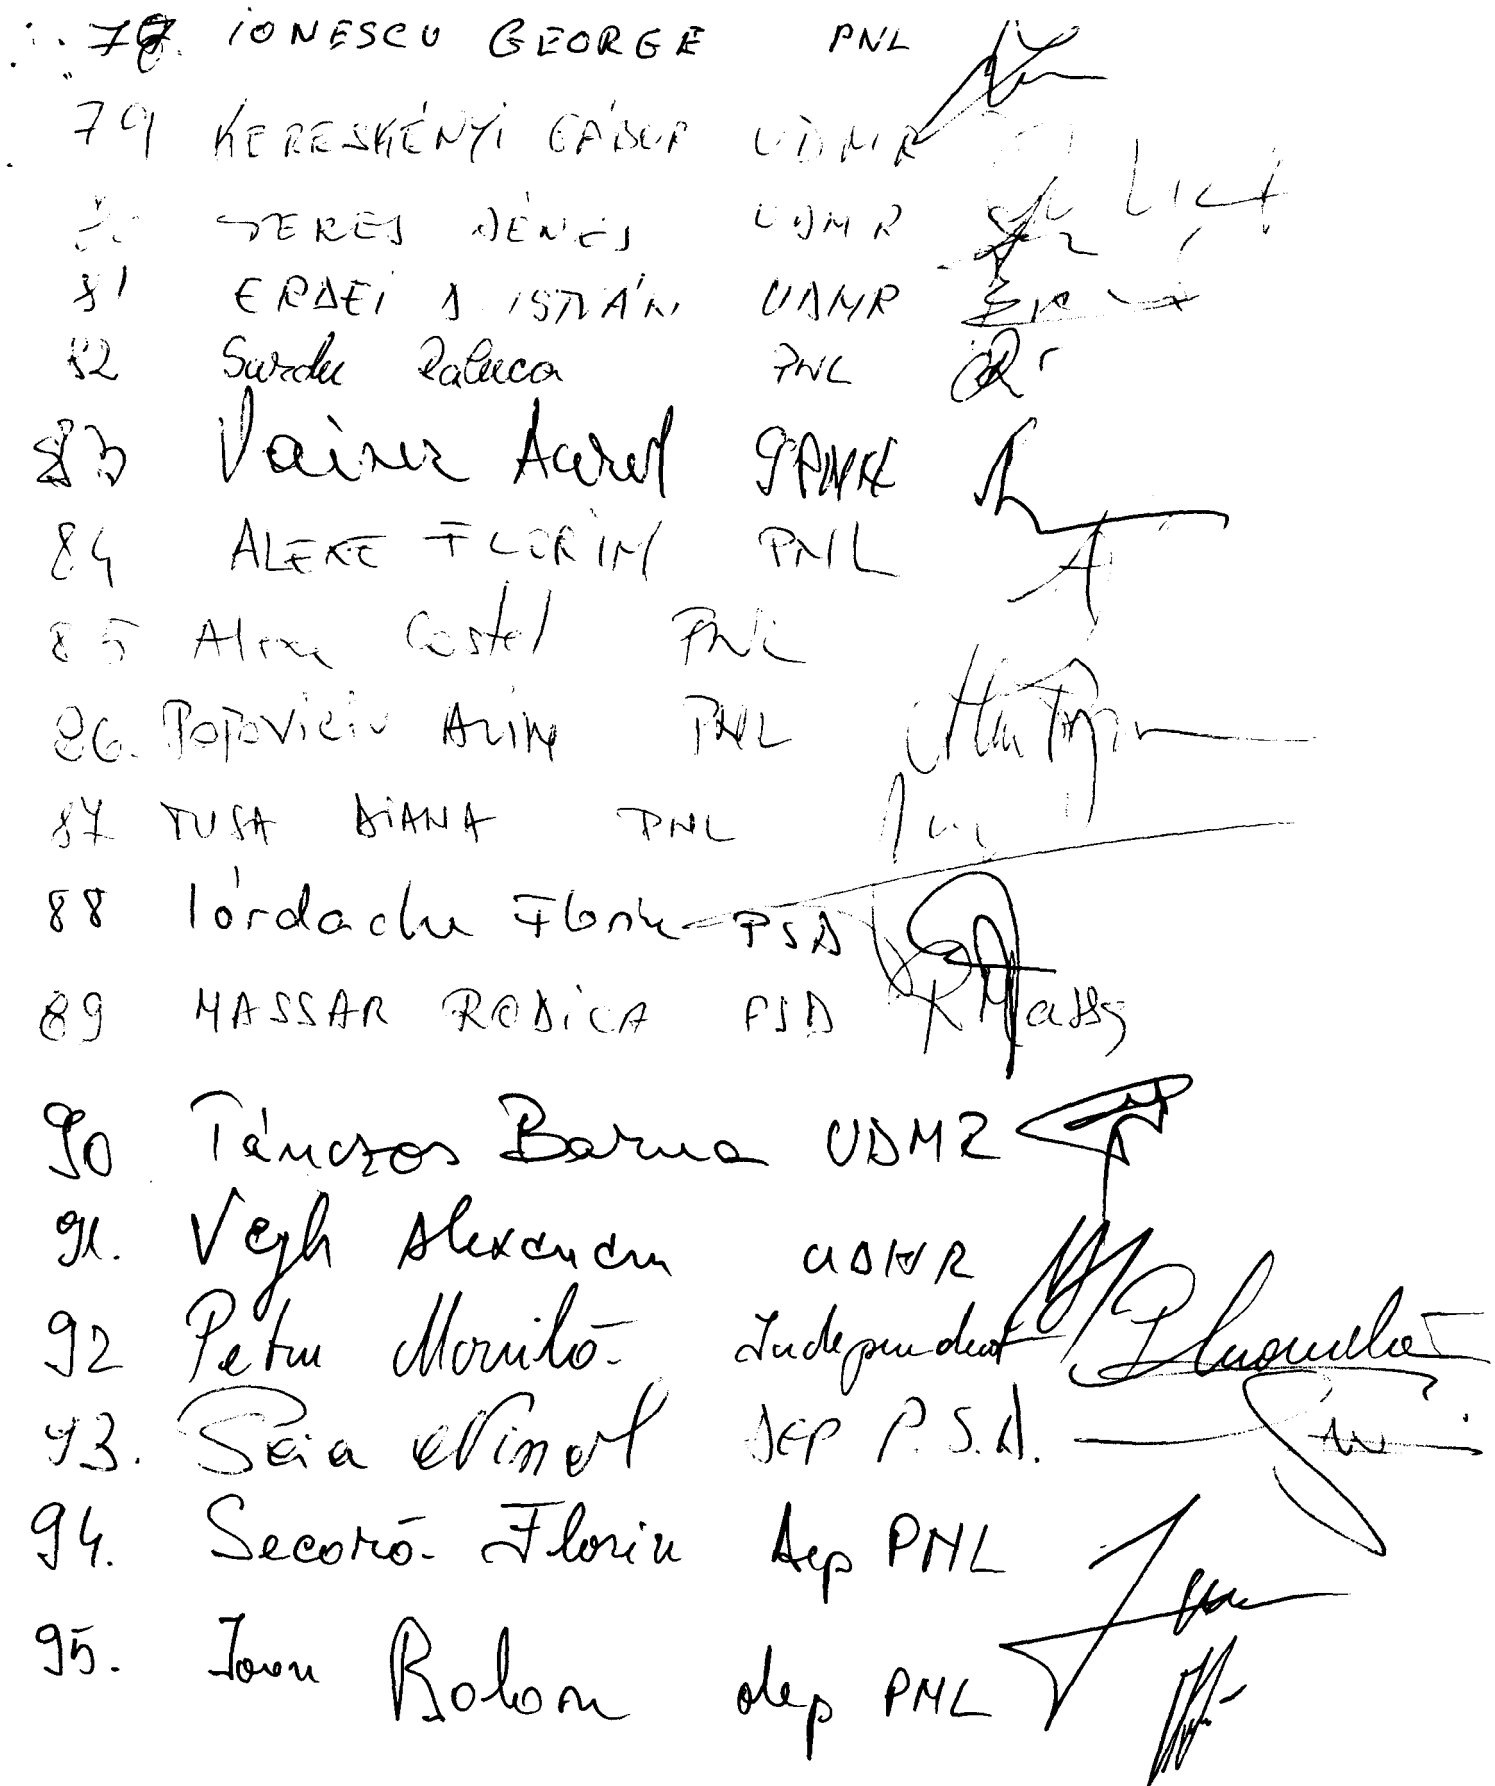 78. IONESCU GEORGE PNL
79 KERESKÉNYI GÁBOR UDMR
SERES DÉNES UDMR
81 ERDEI D ISTVÁN UDMR
82 Surdu Raluca PNL
83 Vainer Aurel
84 ALEXE FLORIN PNL
85 Alexe Costel PNL
86. POPOVICIU ALIN PNL
87 TUSA DIANA PNL
88 Iordache Florin PSD
89 MASSAR RODICA PSD
90 Tánczos Barna UDMR
91. Vegh Alexandru UDMR
92 Petru Movilă Independent
93. Ninel DEP P.S.D.
94. Secară Florin dep PNL
95. Ioan Balan dep PNL